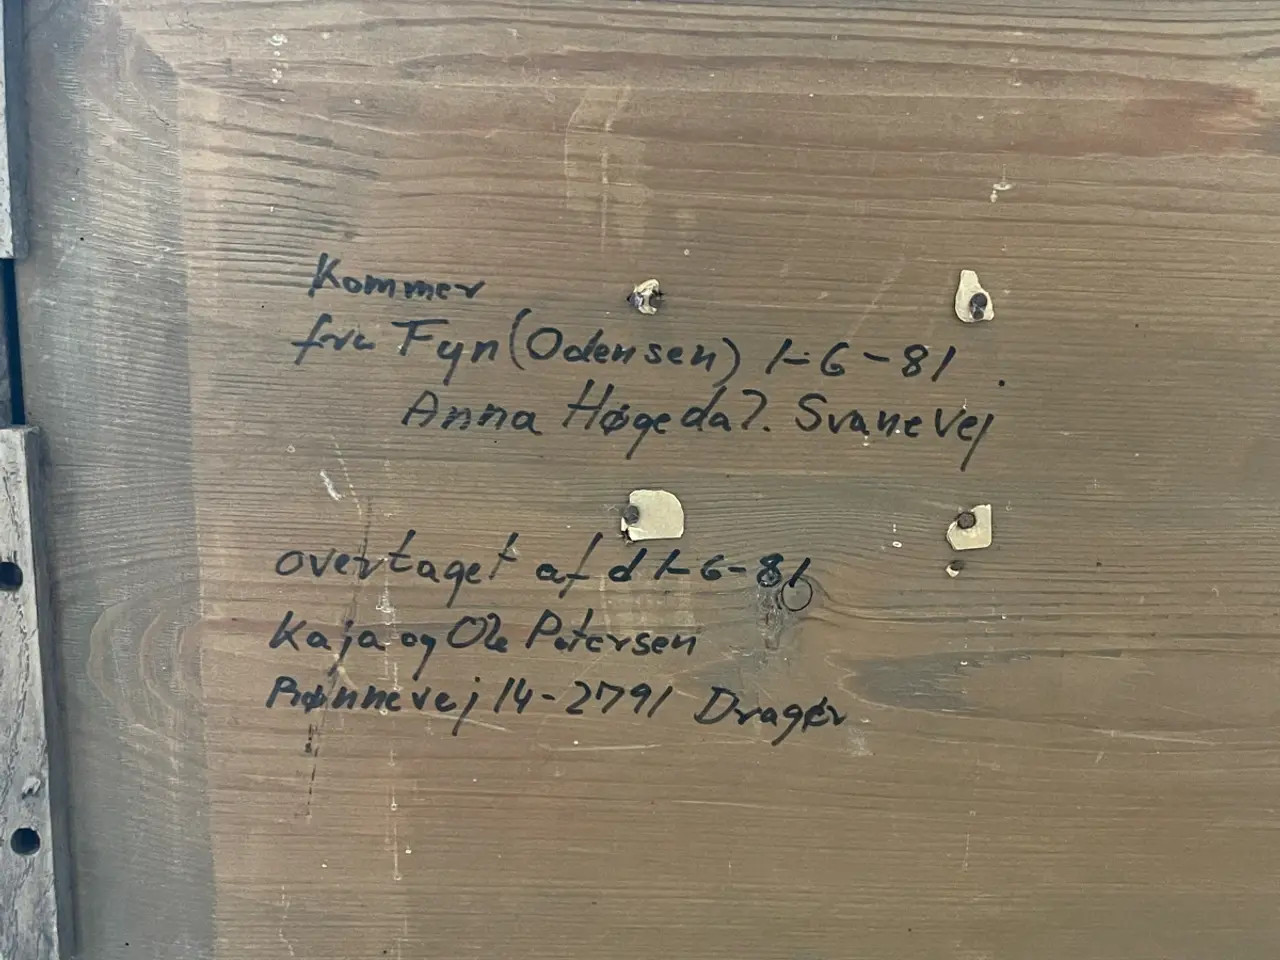 Kommer
fra Fyn (Odensen) 1-6-81.
Anna Høgedal. Svanevej
overtaget af d 1-6-81
Kaja og Ole Petersen
Rønnevej 14-2791 Dragør